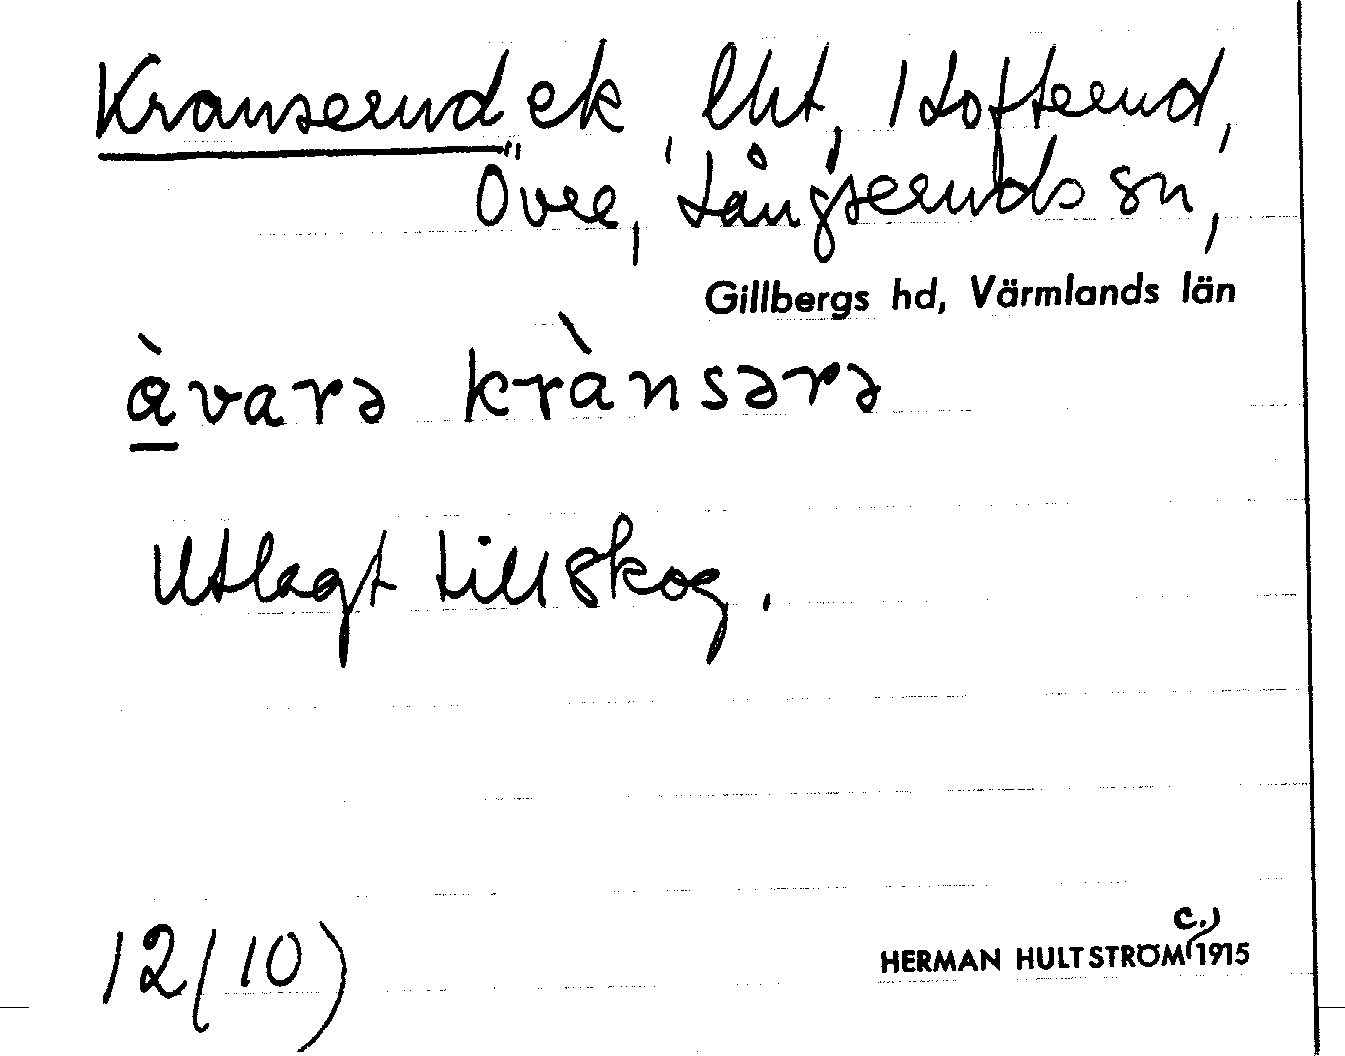 Kranserud, ek, lht, 1 Tofterud,
Övre, Långseruds sn,
Gillbergs hd, Värmlands län
àvarə krànsərə
Utlagt till skog.
12(10)
HERMAN HULTSTRÖM c. 1915